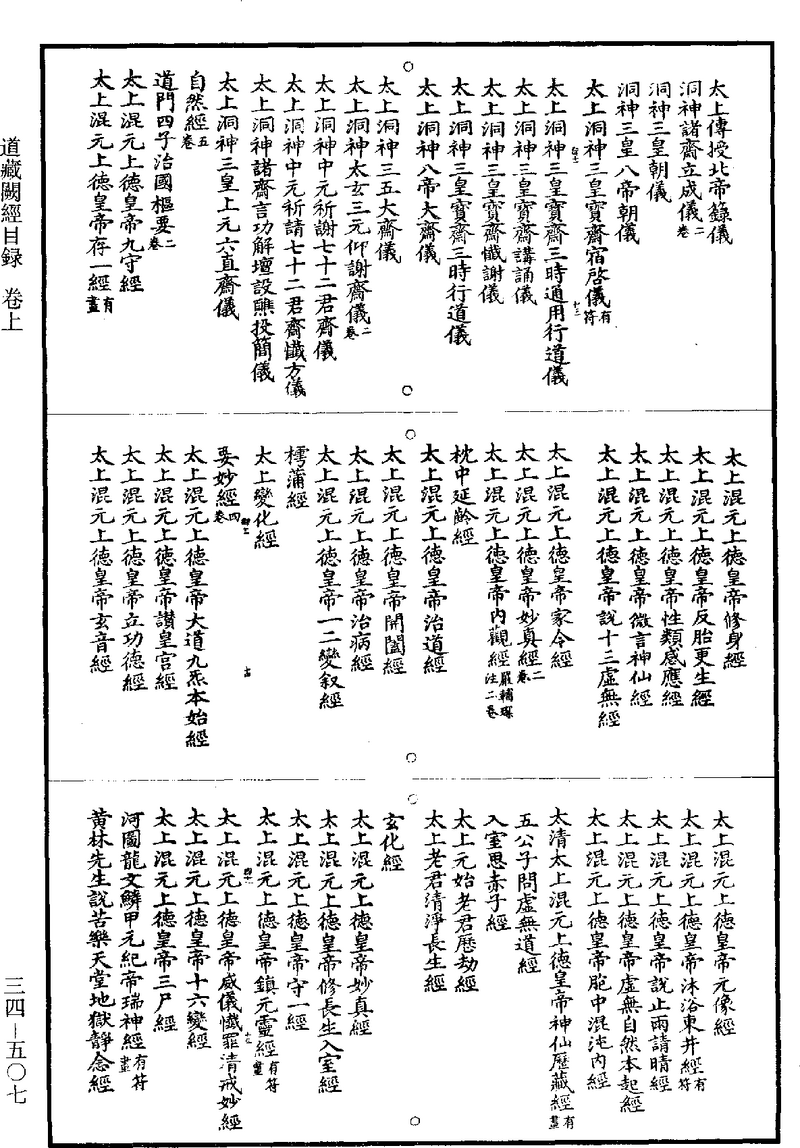 太上傳授北帝籙儀
洞神諸齋立成儀二卷
洞神三皇朝儀
洞神三皇八帝朝儀
太上洞神三皇寶齋宿啓儀有符
太上洞神三皇寶齋三時通用行道儀
太上洞神三皇寶齋講誦儀
太上洞神三皇寶齋懺謝儀
太上洞神三皇寶齋三時行道儀
太上洞神八帝大齋儀
太上洞神三五大齋儀
太上洞神太玄三元仰謝齋儀二卷
太上洞神中元祈謝七十二君齋儀
太上洞神中元祈請七十二君齋懺方儀
太上洞神諸齋言功解壇設醮投簡儀
太上洞神三皇上元六直齋儀
自然經五卷
道門四子治國樞要二卷
太上混元上德皇帝九守經
太上混元上德皇帝存一經有畫
太上混元上德皇帝修身經
太上混元上德皇帝反胎更生經
太上混元上德皇帝性類感應經
太上混元上德皇帝微言神仙經
太上混元上德皇帝說十三虛無經
太上混元上德皇帝家令經
太上混元上德皇帝妙真經二卷
太上混元上德皇帝內觀經嚴輔琛注二卷
枕中延齡經
太上混元上德皇帝治道經
太上混元上德皇帝開闔經
太上混元上德皇帝治病經
太上混元上德皇帝一二變叙經
樗蒲經
太上變化經
要妙經四卷
太上混元上德皇帝大道九炁本始經
太上混元上德皇帝讚皇宫經
太上混元上德皇帝立功德經
太上混元上德皇帝玄音經
太上混元上德皇帝元像經
太上混元上德皇帝沐浴東井經有符
太上混元上德皇帝說止雨請晴經
太上混元上德皇帝虛無自然本起經
太上混元上德皇帝胞中混沌內經
太清太上混元上德皇帝神仙歷藏經有畫
五公子問虛無道經
入室思赤子經
太上元始老君歷劫經
太上老君清淨長生經
玄化經
太上混元上德皇帝妙真經
太上混元上德皇帝修長生入室經
太上混元上德皇帝守一經
太上混元上德皇帝鎮元靈經有符畫
太上混元上德皇帝威儀懺罪清戒妙經
太上混元上德皇帝十六變經
太上混元上德皇帝三尸經
河圖龍文鱗甲元紀帝瑞神經有符畫
黄林先生說苦樂天堂地獄靜念經
道藏闕經目録 卷上
三四－五〇七